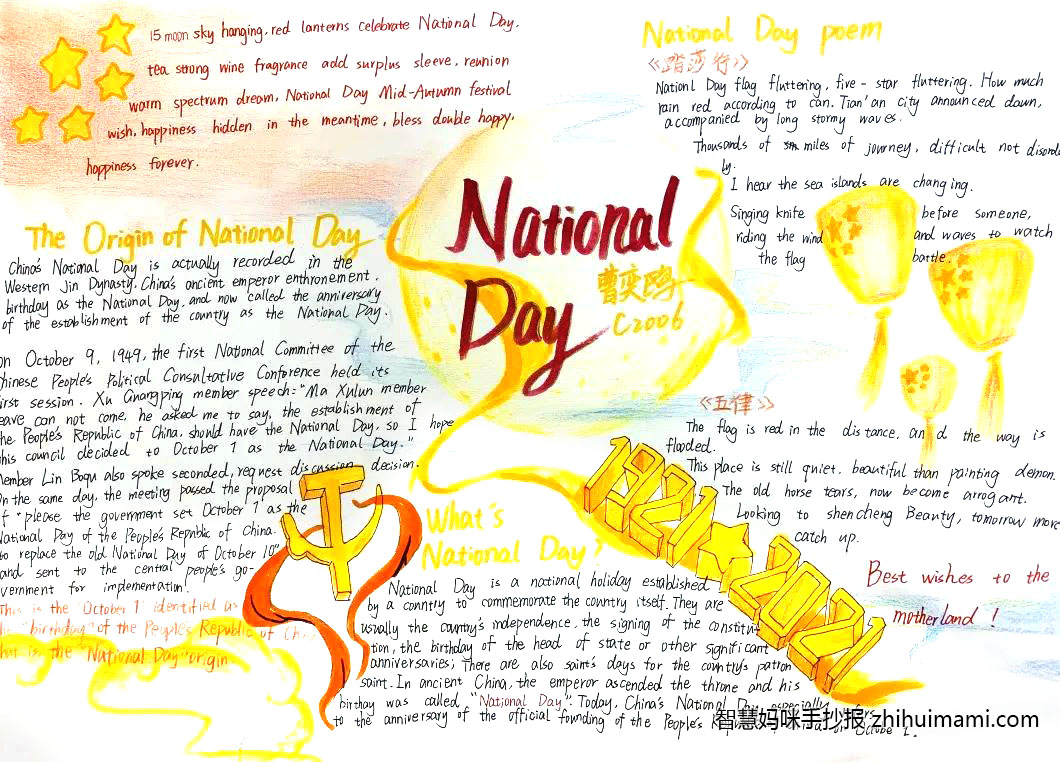 15 moon sky hanging, red lanterns celebrate National Day,
tea strong wine fragrance add surplus sleeve, reunion
warm spectrum dream, National Day Mid-Autumn festival
wish, happiness hidden in the meantime, bless double happy,
happiness forever.
National Day poem
《踏莎行》
Nationl Day flag fluttering, five-star fluttering. How much
rain red according to can. Tian'an city announced dawn,
accompanied by long stormy waves.
Thousands of miles of journey, difficult not disorde
ly.
I hear the sea islands are changing.
Singing knife before someone,
riding the wind and waves to watch
the flag battle.
National
Day
C2006
The Origin of National Day
China's National Day is actually recorded in the
Western Jin Dynasty. China's ancient emperor enthronement.
birthday as the National Day, and now called the anniversary
of the establishment of the country as the National Day.
on October 9, 1949, the first National Committee of the
Chinese People's Political Consultative Conference held its
first session. Xu Guangping member speech: "Ma Xulun member
leave can not come, he asked me to say, the establishment of
the People's Republic of China, should have the National Day, so I hope
this council decided to October 1 as the National Day."
Member Lin Boqu also spoke seconded, request discussion decision.
On the same day, the meeting passed the proposal
of "please the government set October 1 as the
National Day of the People's Republic of China.
to replace the old National Day of October 10"
and sent to the central people's go-
vernment for implementation.
This is the "October 1" identified as
the "birthday" of the People's Republic of Chi
that is, the "National Day" origin
《五律》
The flag is red in the distance, and the way is
flooded.
This place is still quiet, beautiful than painting demon.
The old horse tears, now become arrogant.
Looking to shencheng Beauty, tomorrow more
catch up.
1921★2021
Best wishes to the
motherland!
What's
National Day?
National Day is a national holiday established
by a country to commemorate the country itself. They are
usually the country's independence, the signing of the constitut
tion, the birthday of the head of state or other significant
anniversaries; There are also saint's days for the country's patron
saint. In ancient China, the emperor ascended the throne and his
birthay was called "National Day". Today, China's National Day especially
to the anniversary of the official founding of the People's
智慧妈咪手抄报 zhihuimami.com